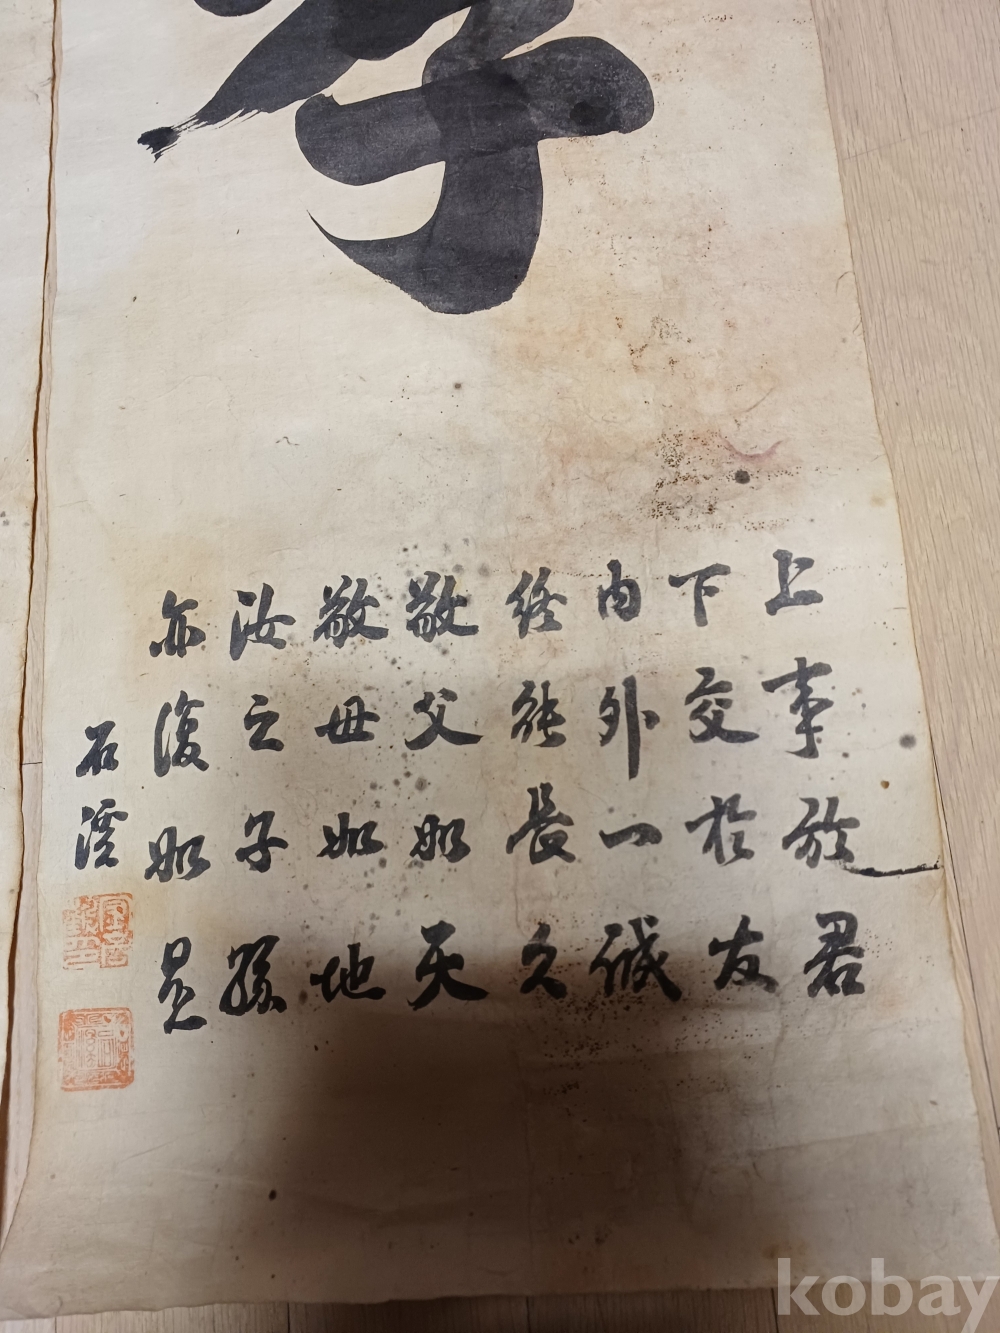 孝
上事於君
下交於友
内外一誠
終能長久
敬父如天
敬母如地
汝之子孫
亦復如是
石溪
kobay